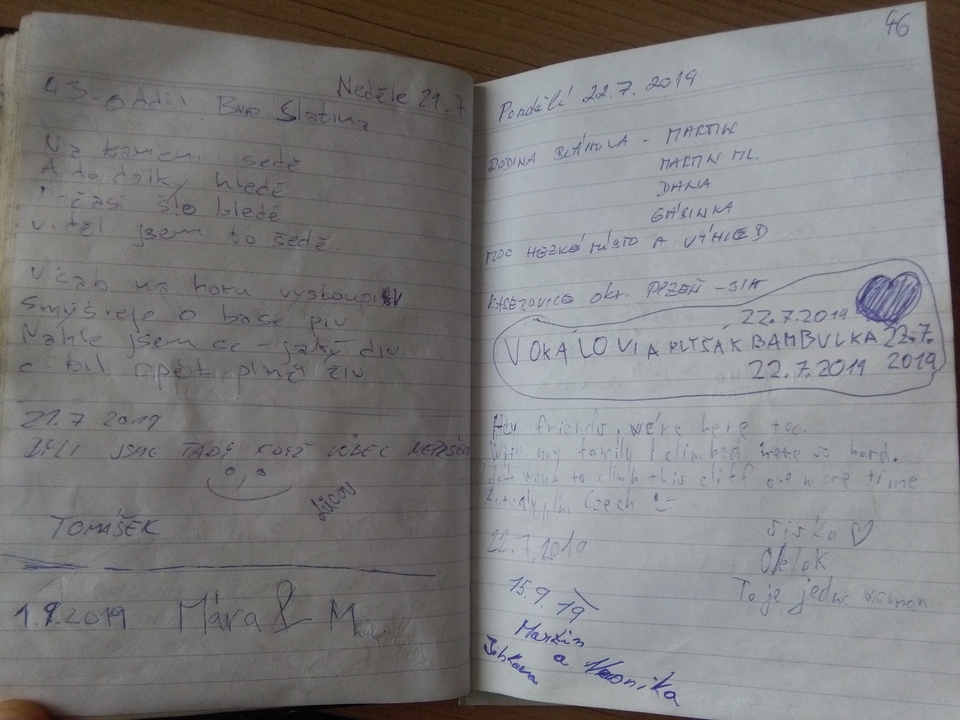 Neděle 21.7
43. oddíl Brno Slatina
Na kameni sedě
A do dálky hledě
časi šlo hledě
viděl jsem to šedě.
Však na horu vystoupi
Smýšleje o base piv
Náhle jsem cc - jaký div
c byl opět plný živ
21.7 2019
BYLI JSME TADY KDYŽ VŮBEC NEPRŠELO
TOMÍŠEK
1.9.2019 Mára & M
46
Pondělí 22.7.2019
RODINA BLÁHOVA - MARTIN
MARTIN ML.
DANA
GÁBINKA
MOC HEZKÉ MÍSTO A VÝHLED
OKR. PLZEŇ - JIH
22.7.2019
VOKÁLOVI A PLYŠÁK BAMBULKA 22.7.
22.7.2019 2019
Hey friends, we're here too.
With my family I climbed here so hard.
want to climb this cliff one more time
Actually, I'm Czech
Siska
22.7.2019
To je jedno
15.9.19
Martin
a Veronika